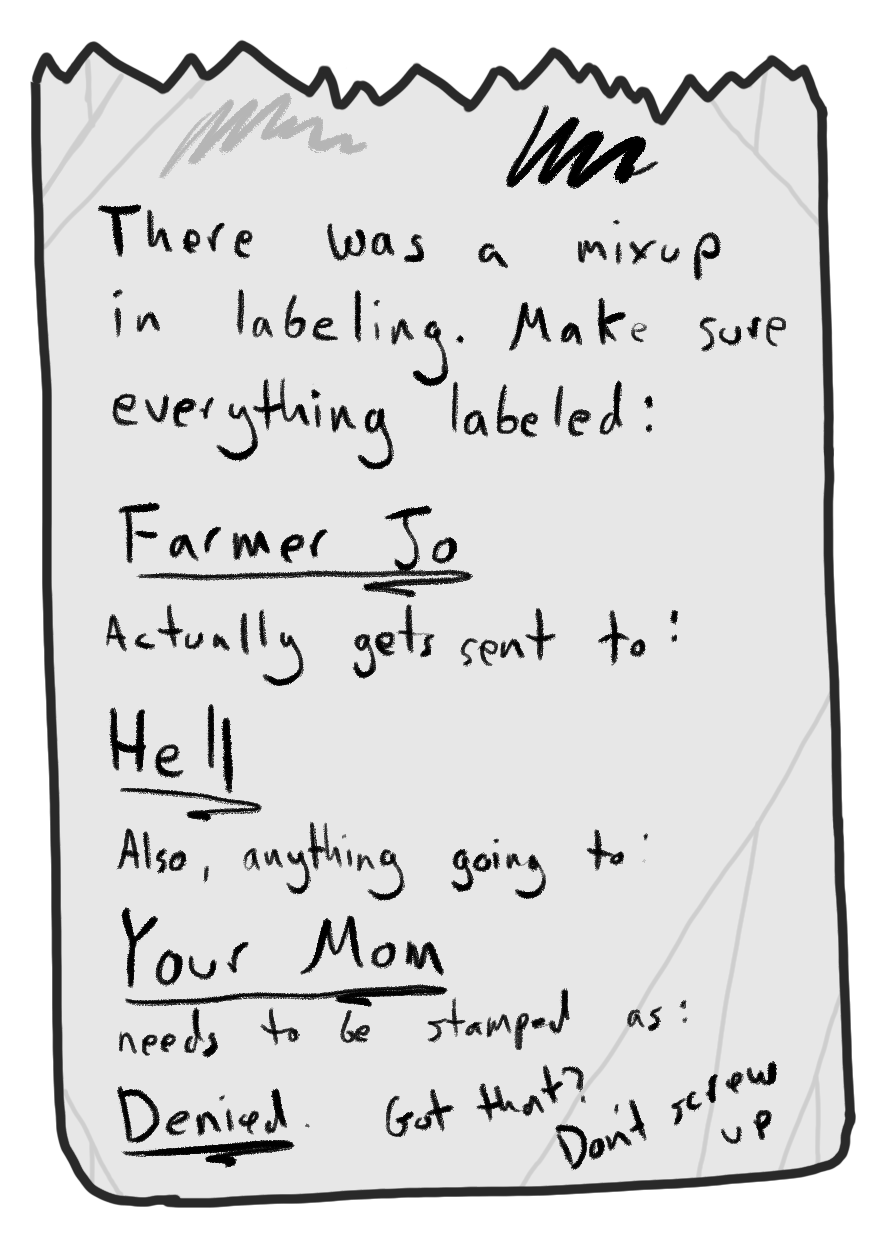 There was a mixup
in labeling. Make sure
everything labeled:
Farmer Jo
Actually gets sent to:
Hell
Also, anything going to:
Your Mom
needs to be stamped as:
Denied. Got that?
Don't screw
up